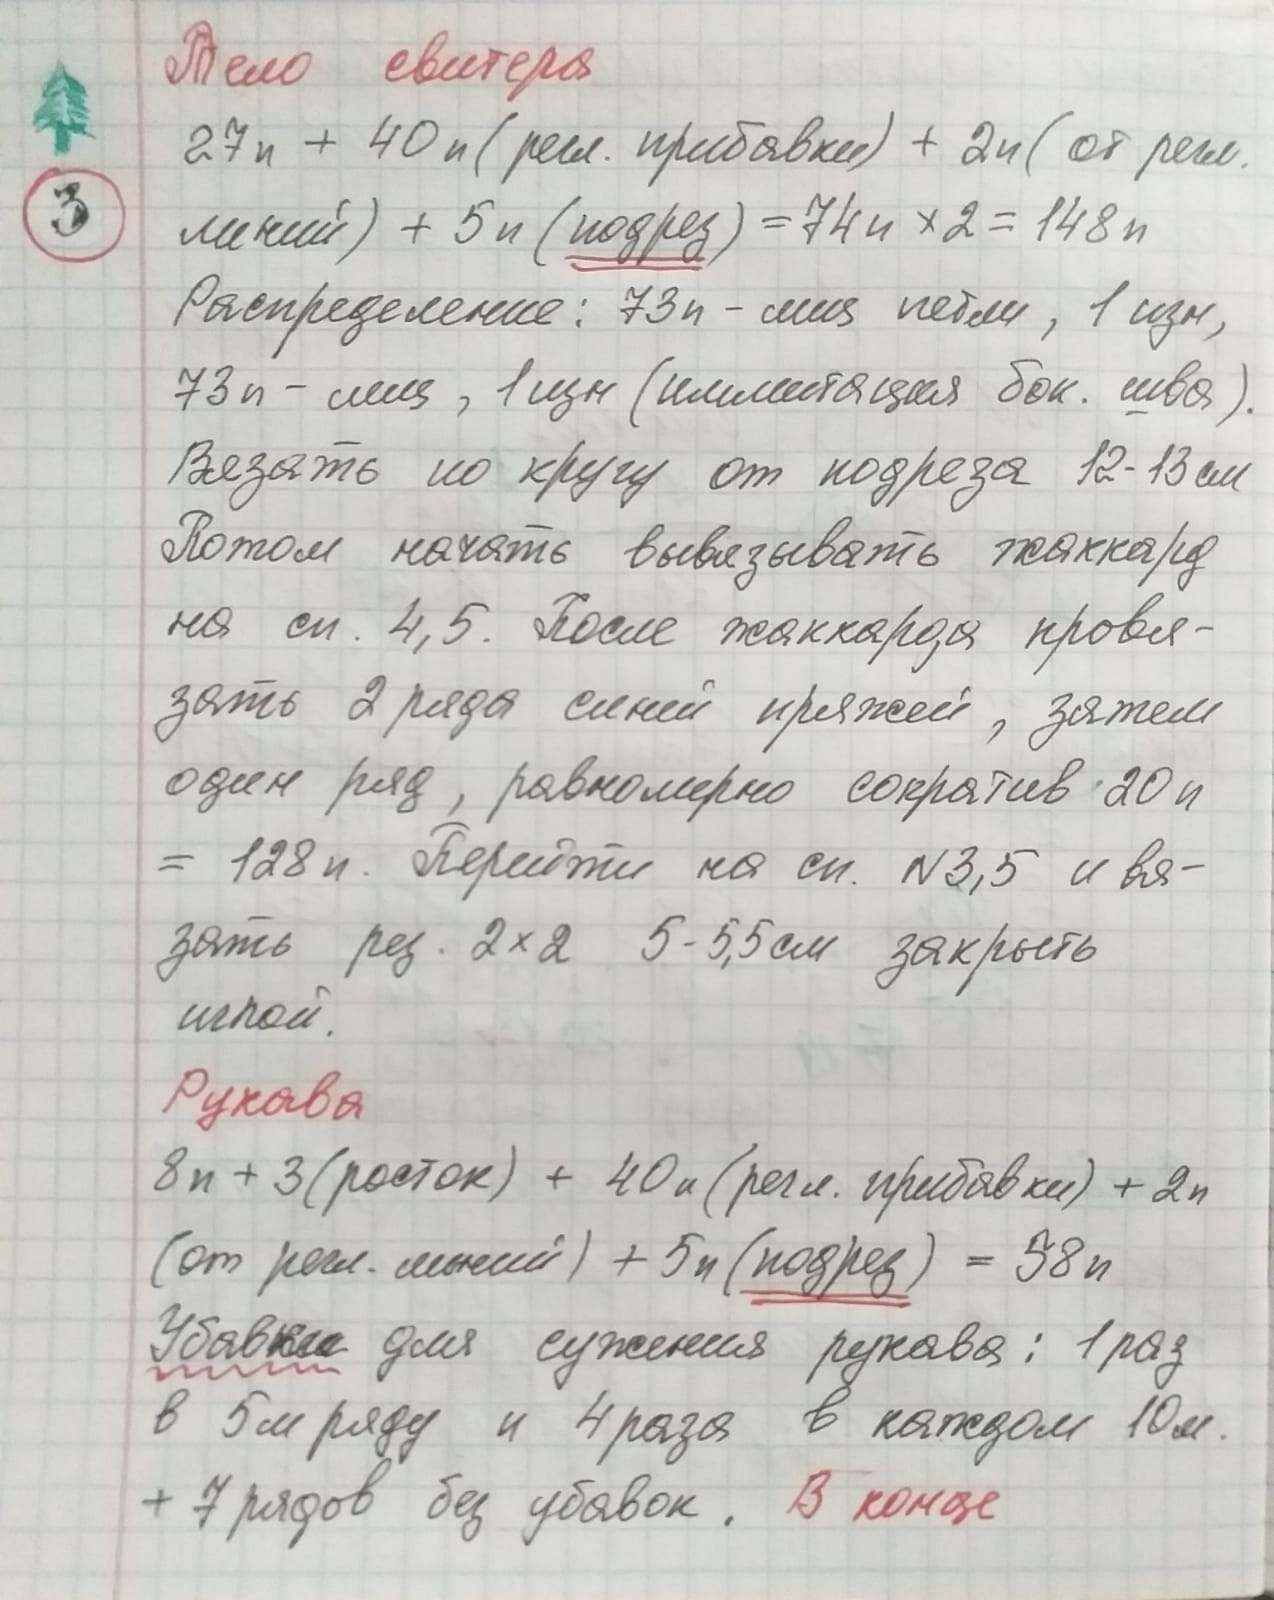 Тело свитера
27п + 40п (регл. прибавки) + 2п (от регл.
3
линий) + 5п (подрез) = 74п × 2 = 148п
Распределение: 73п - лиц петли, 1 изн,
73п - лиц, 1 изн (иммитация бок. шва).
Вязать по кругу от подреза 12-13 см
Потом начать вывязывать жаккард
на сп. 4,5. После жаккарда провя-
зать 2 ряда синей пряжей, затем
один ряд, равномерно сократив 20п
= 128п. Перейти на сп. N3,5 и вя-
зать рез. 2×2 5-5,5см закрыть
иглой.
Рукава
8п + 3 (росток) + 40п (регл. прибавки) + 2п
(от регл. линий) + 5п (подрез) = 58п
Убавки для сужения рукава: 1 раз
в 5м ряду и 4 раза в каждом 10м.
+ 7 рядов без убавок. В конце